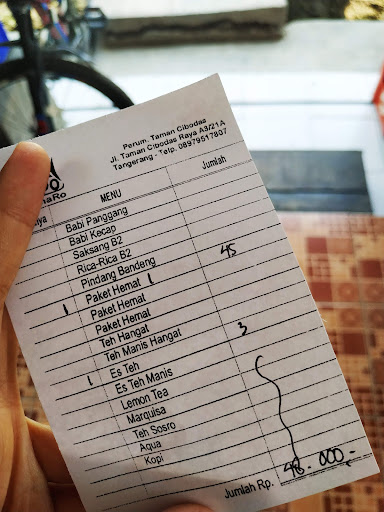 Perum. Taman Cibodas
Jl. Taman Cibodas Raya A3/21A
Tangerang - Telp. 08979517807
naRo
ya MENU Jumlah
Babi Panggang
Babi Kecap
Saksang B2
Rica-Rica B2
Pindang Bandeng
1 Paket Hemat 1 45
Paket Hemat
Paket Hemat
Teh Hangat
Teh Manis Hangat
1 Es Teh 3
Es Teh Manis
Lemon Tea
Marquisa
Teh Sosro
Aqua
Kopi
Jumlah Rp. 48.000,-